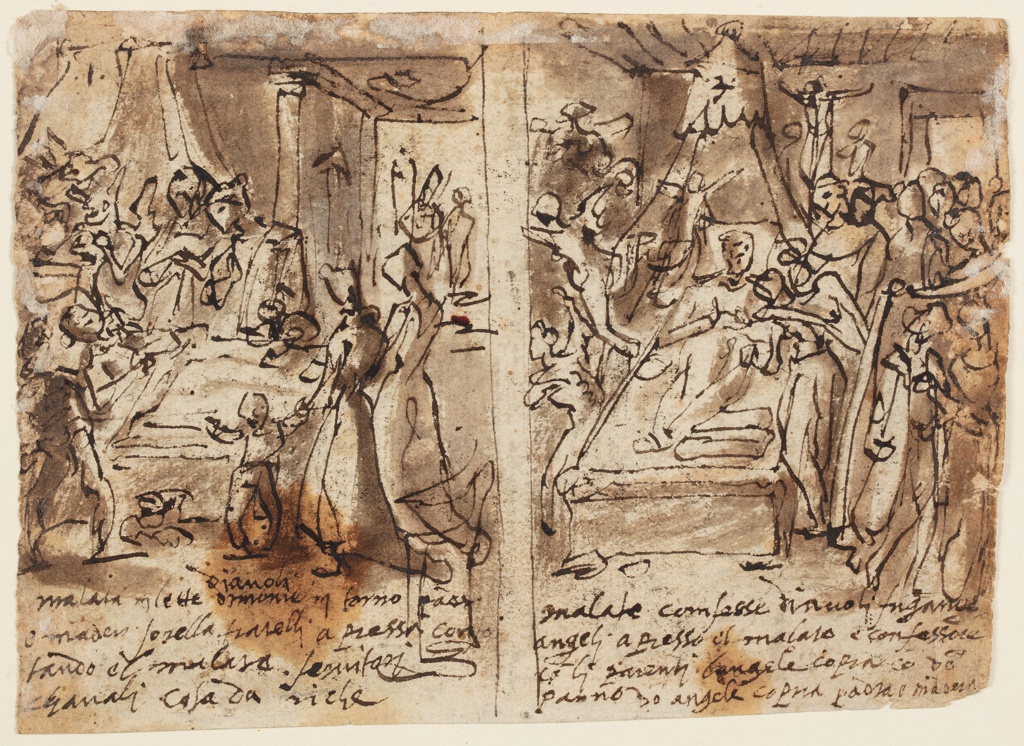 diavoli
malata in lette dimonie in torno padr
e madere sorella fratelli a pressa confo
tando el malato. servitori
chavali casa da riche
malate comfesse diavoli fugame
angeli a presso el malato e confessore
co li parenti angele copra co do
panno do angele copria padra e madera